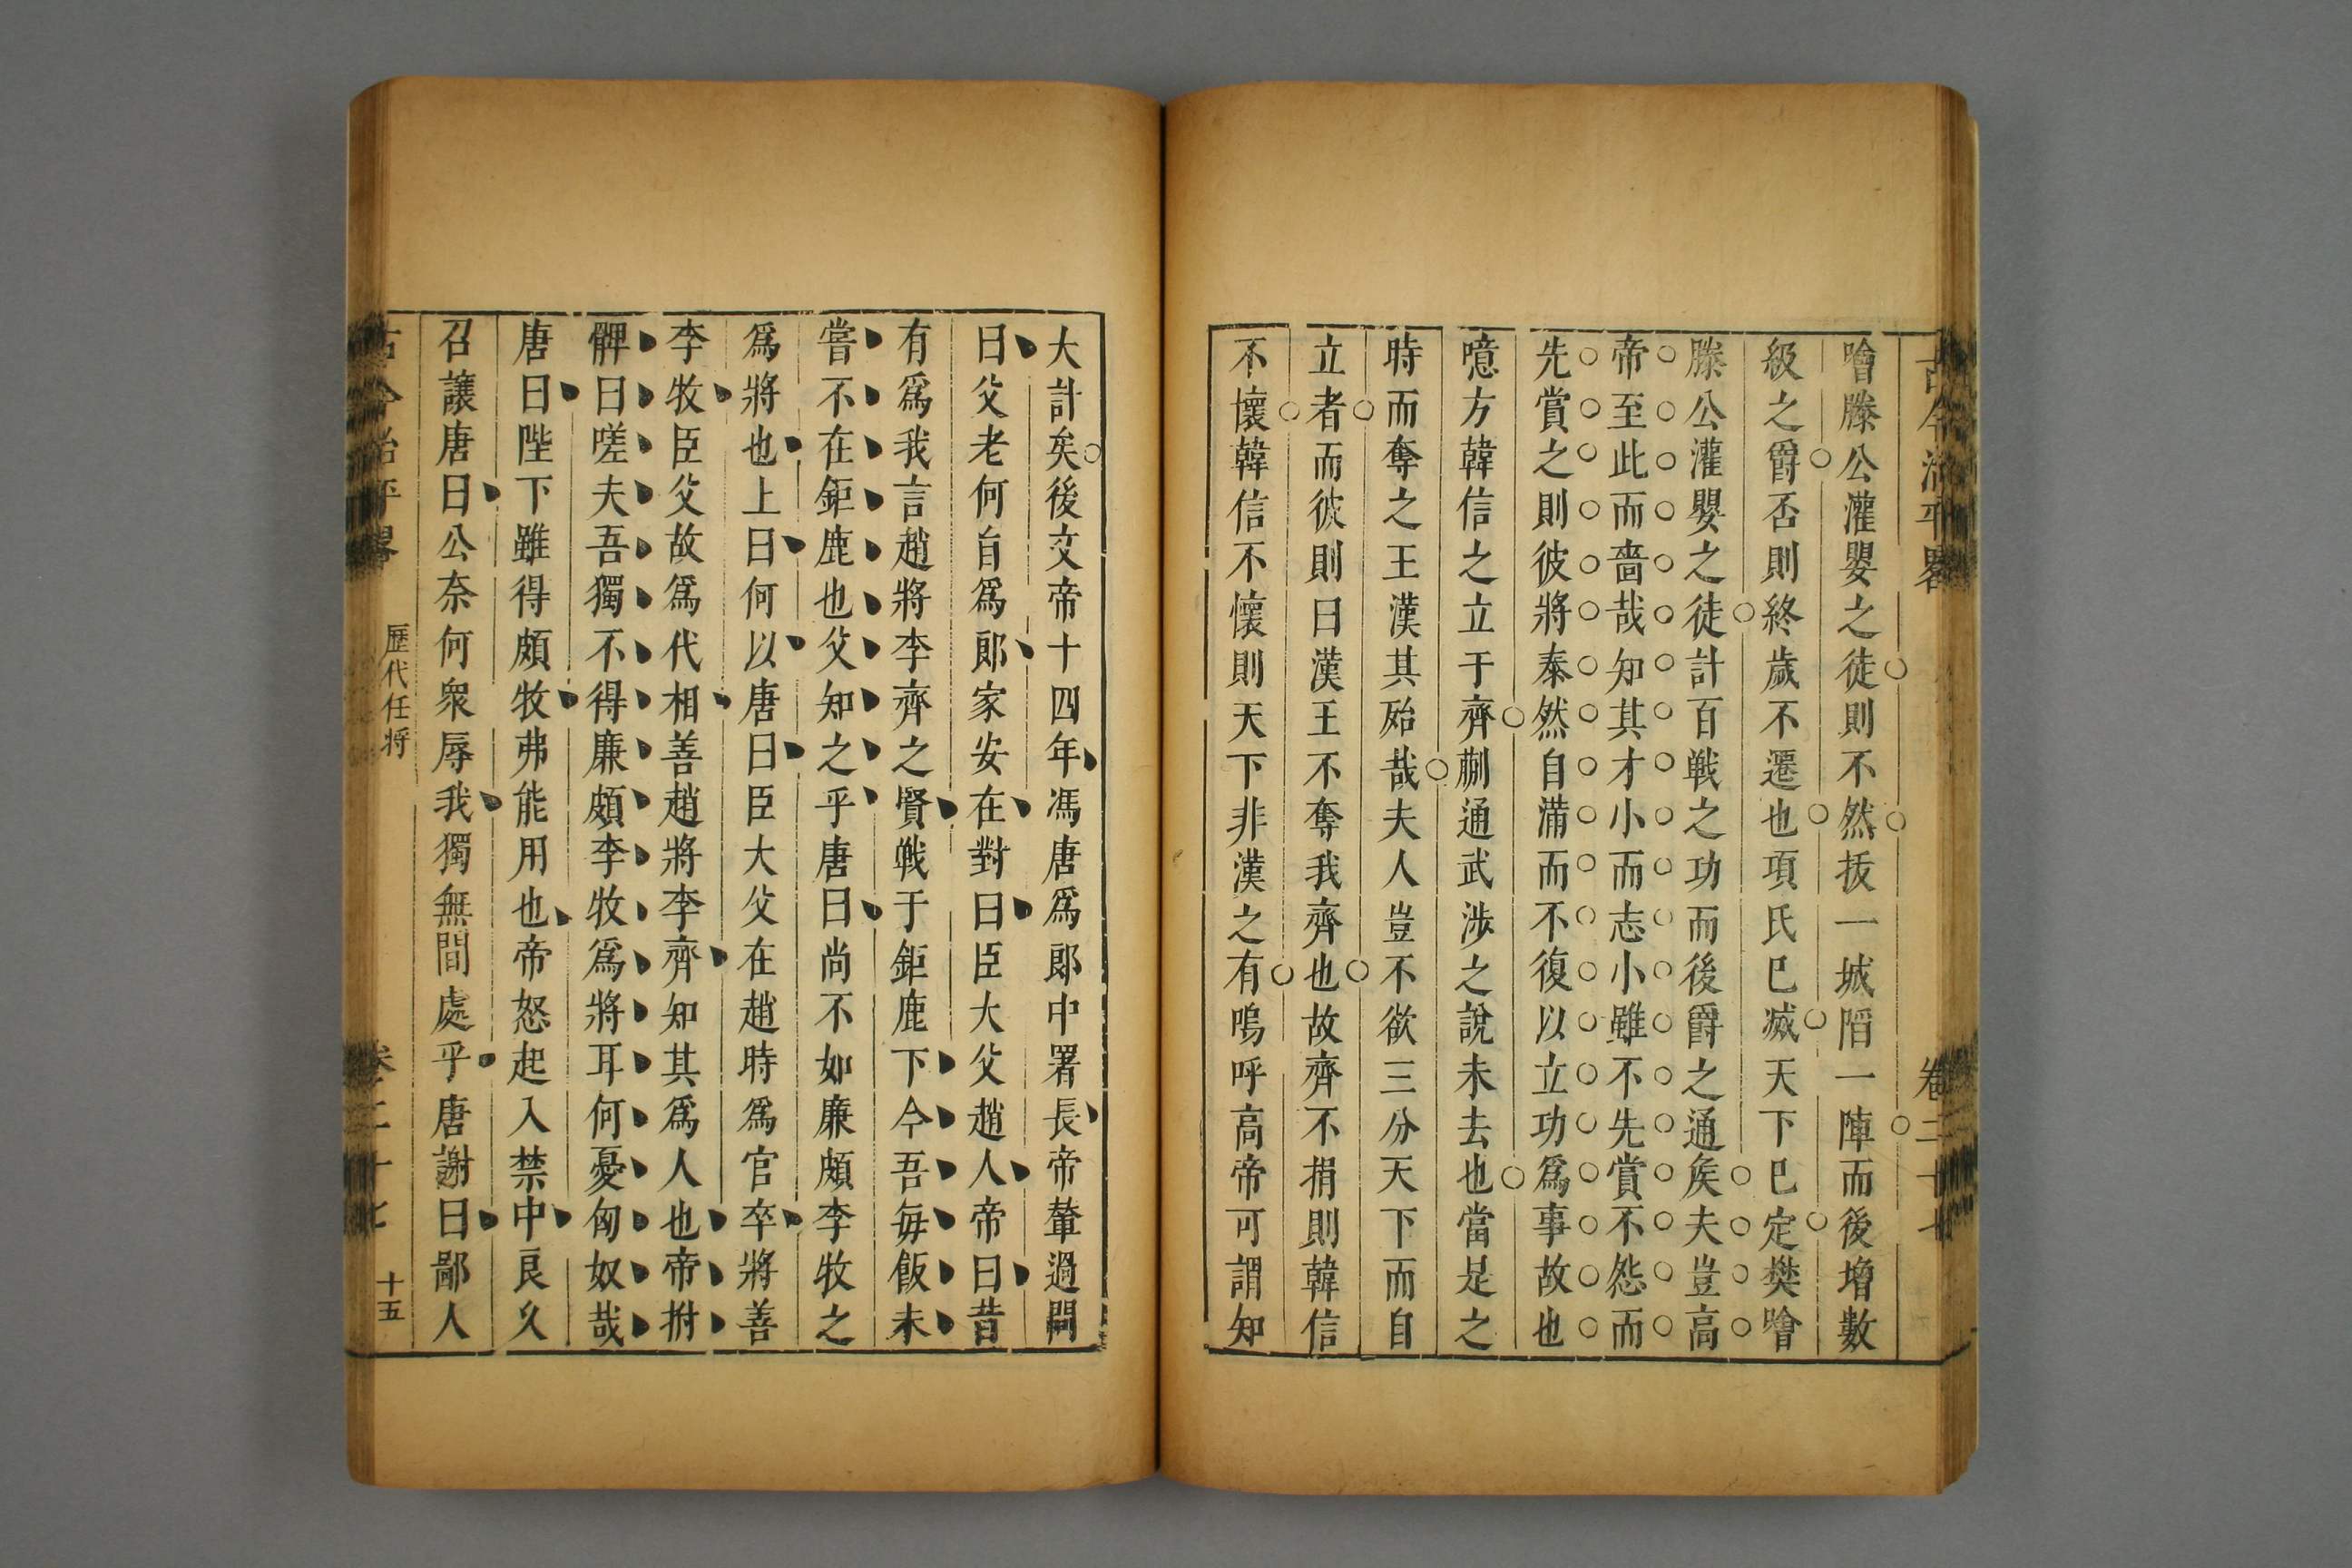 古今治平畧 卷二十七
噲滕公灌嬰之徒則不然拔一城䧟一陣而後增數
級之爵否則終歲不遷也項氏已滅天下已定樊噲
滕公灌嬰之徒計百戰之功而後爵之通矦夫豈高
帝至此而嗇哉知其才小而志小雖不先賞不怨而
先賞之則彼將泰然自滿而不復以立功爲事故也
噫方韓信之立于齊蒯通武涉之說未去也當是之
時而奪之王漢其殆哉夫人豈不欲三分天下而自
立者而彼則曰漢王不奪我齊也故齊不捐則韓信
不懷韓信不懷則天下非漢之有嗚呼高帝可謂知
大計矣後文帝十四年馮唐爲郞中署長帝輦過問
曰父老何自爲郞家安在對曰臣大父趙人帝曰昔
有爲我言趙將李齊之賢戰于鉅鹿下今吾每飯未
嘗不在鉅鹿也父知之乎唐曰尚不如廉頗李牧之
爲將也上曰何以唐曰臣大父在趙時爲官卒將善
李牧臣父故爲代相善趙將李齊知其爲人也帝拊
髀曰嗟夫吾獨不得廉頗李牧爲將耳何憂匈奴哉
唐曰陛下雖得頗牧弗能用也帝怒起入禁中良久
召讓唐曰公奈何衆辱我獨無間處乎唐謝曰鄙人
古今治平畧 歷代任將 卷二十七 十五